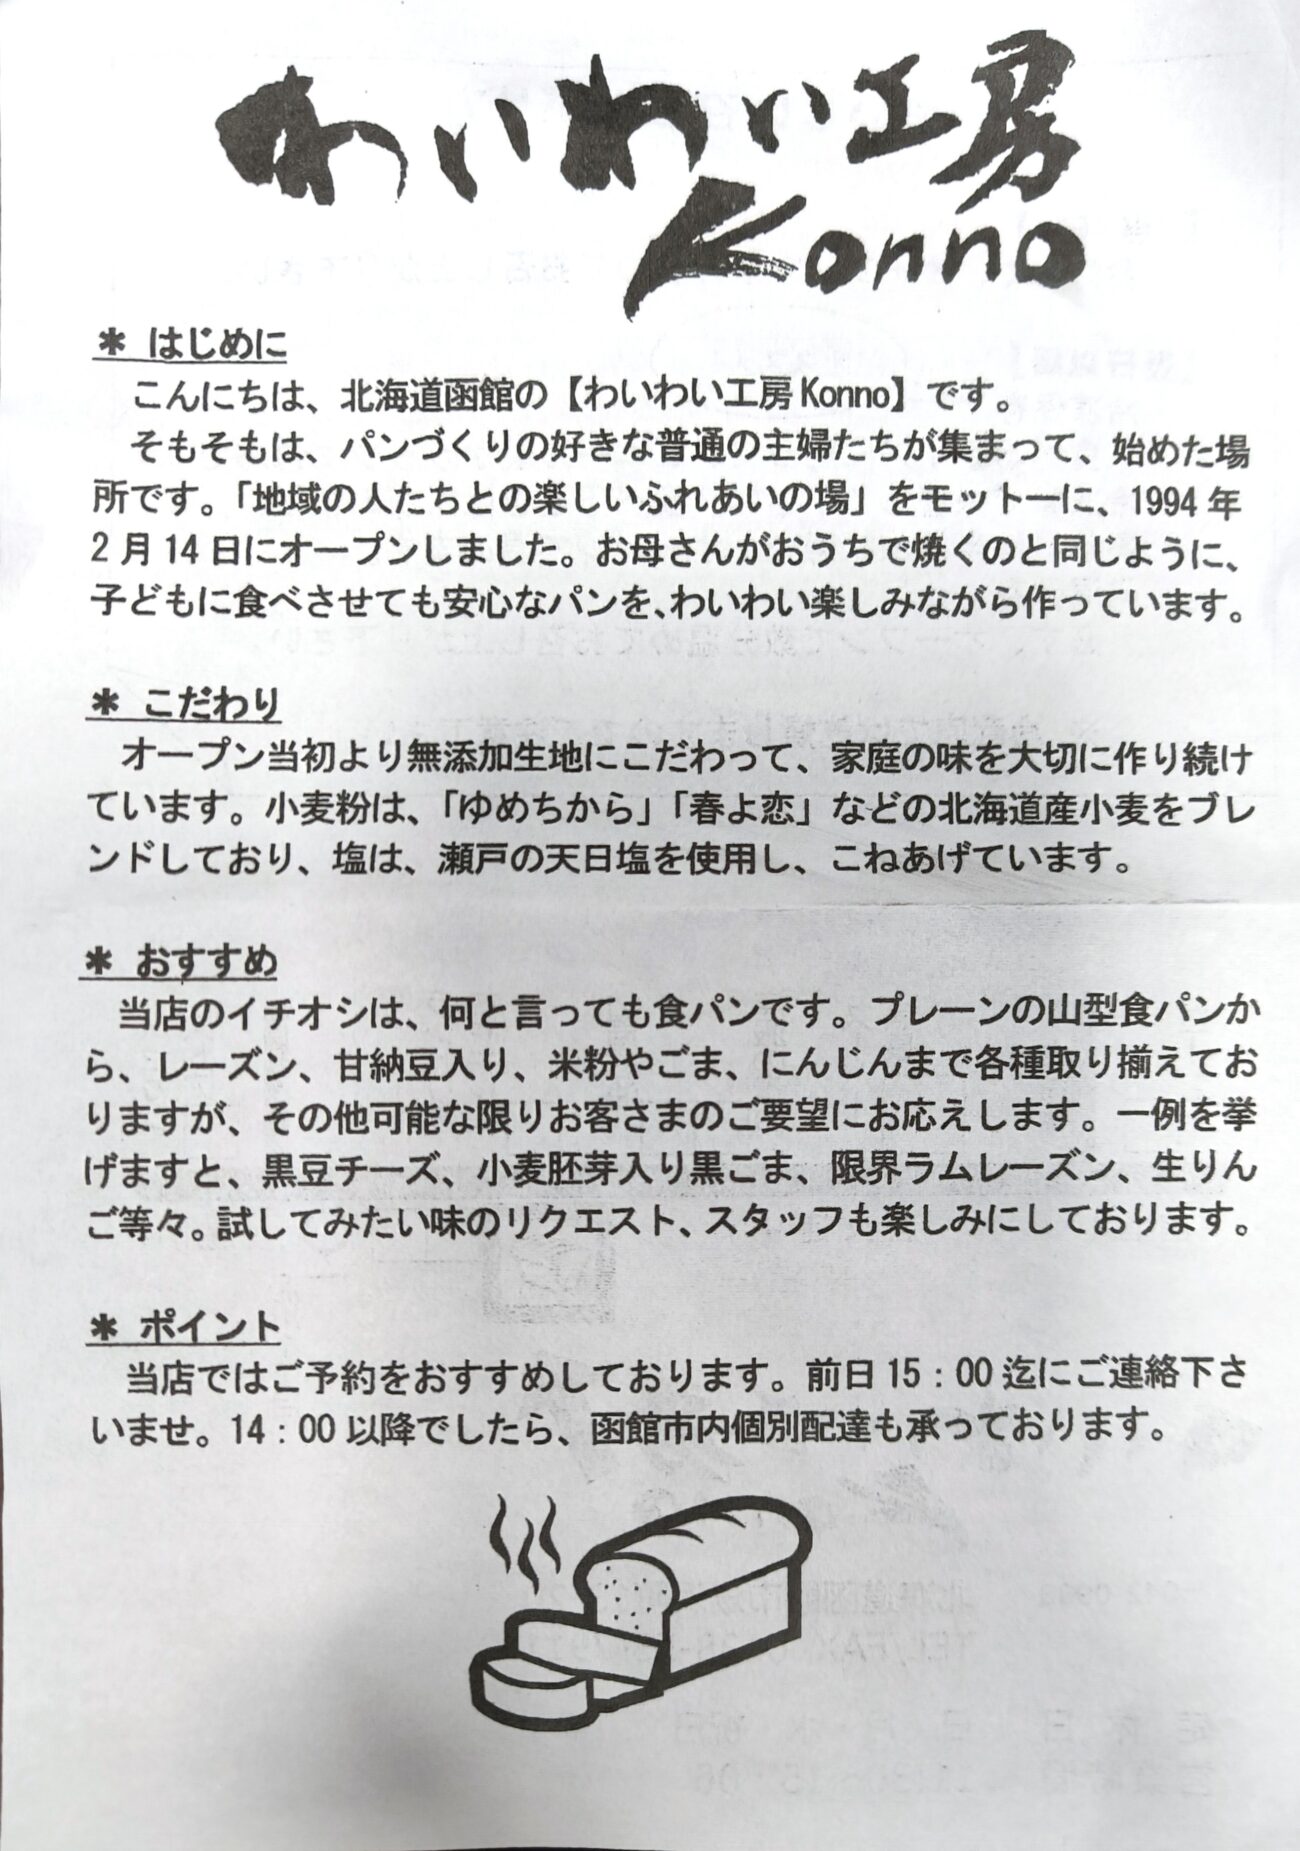 わいわい工房
Konno
＊ はじめに
こんにちは、北海道函館の【わいわい工房Konno】です。
そもそもは、パンづくりの好きな普通の主婦たちが集まって、始めた場
所です。「地域の人たちとの楽しいふれあいの場」をモットーに、1994年
2月14日にオープンしました。お母さんがおうちで焼くのと同じように、
子どもに食べさせても安心なパンを、わいわい楽しみながら作っています。
＊ こだわり
オープン当初より無添加生地にこだわって、家庭の味を大切に作り続け
ています。小麦粉は、「ゆめちから」「春よ恋」などの北海道産小麦をブレ
ンドしており、塩は、瀬戸の天日塩を使用し、こねあげています。
＊ おすすめ
当店のイチオシは、何と言っても食パンです。プレーンの山型食パンか
ら、レーズン、甘納豆入り、米粉やごま、にんじんまで各種取り揃えてお
りますが、その他可能な限りお客さまのご要望にお応えします。一例を挙
げますと、黒豆チーズ、小麦胚芽入り黒ごま、限界ラムレーズン、生りん
ご等々。試してみたい味のリクエスト、スタッフも楽しみにしております。
＊ ポイント
当店ではご予約をおすすめしております。前日15：00迄にご連絡下さ
いませ。14：00以降でしたら、函館市内個別配達も承っております。